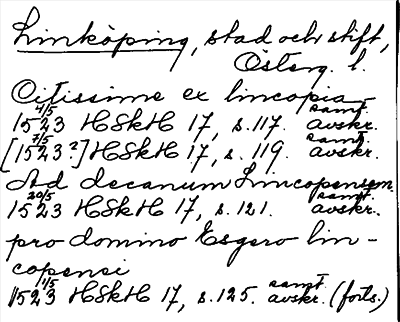 Linköping, stad och stift,
Österg. l.
Citissime ex lincopia
4/5 samt.
1523 HSkH 17, s. 117. avskr.
7/5 samt.
[1523?] HSkH 17, s. 119. avskr.
Ad decanum Lincopensem.
20/5 samt.
1523 HSkH 17, s. 121. avskr.
pro domino Esgero lin-
copensi
1/5 samt.
1523 HSkH 17, s. 125. avskr. (forts.)